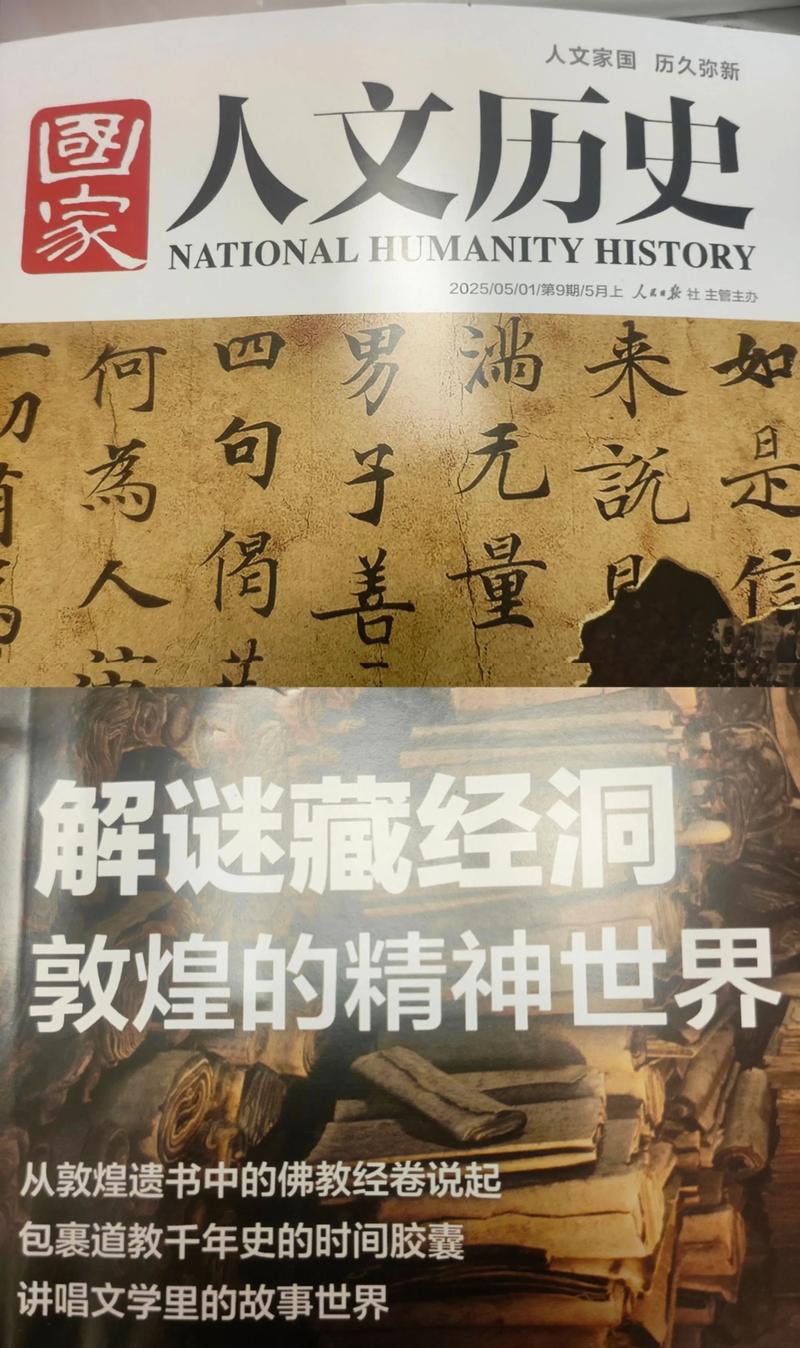 人文家国 历久弥新
國家 人文历史
NATIONAL HUMANITY HISTORY
2025/05/01/第9期/5月上 人民日报 社 主管主办
如是信
来說
满无量
男子善
四句偈
何為人
一切有為
解谜藏经洞
敦煌的精神世界
从敦煌遗书中的佛教经卷说起
包裹道教千年史的时间胶囊
讲唱文学里的故事世界